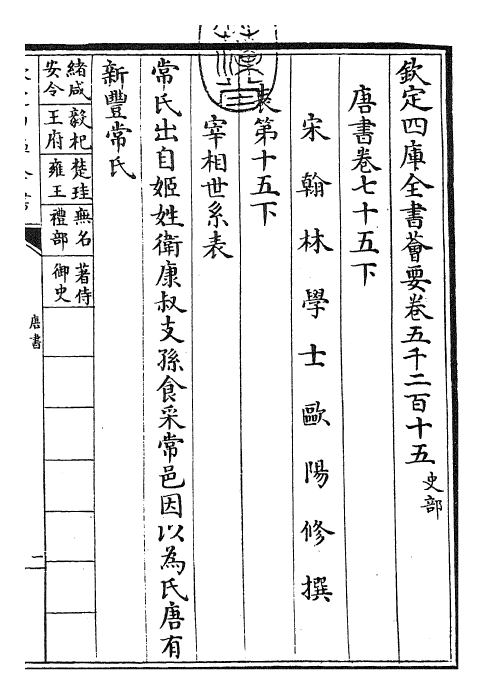 欽定四庫全書薈要卷五千二百十五 史部
唐書卷七十五下
宋翰林學士歐陽修撰
表第十五下
宰相世系表
常氏出自姬姓衛康叔支孫食采常邑因以為氏唐有
新豐常氏
緒咸安令
毅杞王府
楚珪雍王
無名禮部
著侍御史
唐書
二